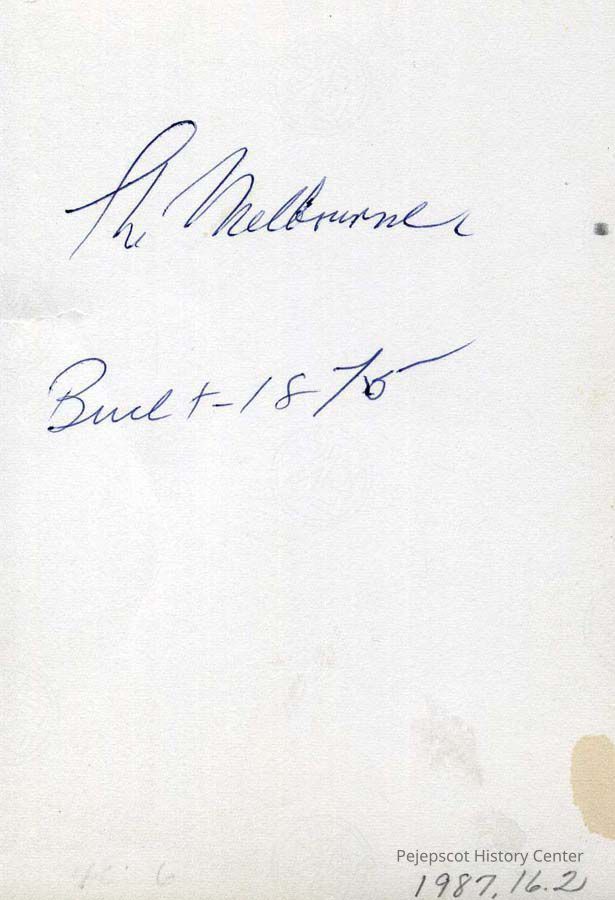 The Melbourne
Built-1875
Pejepscot History Center
1987.16.2